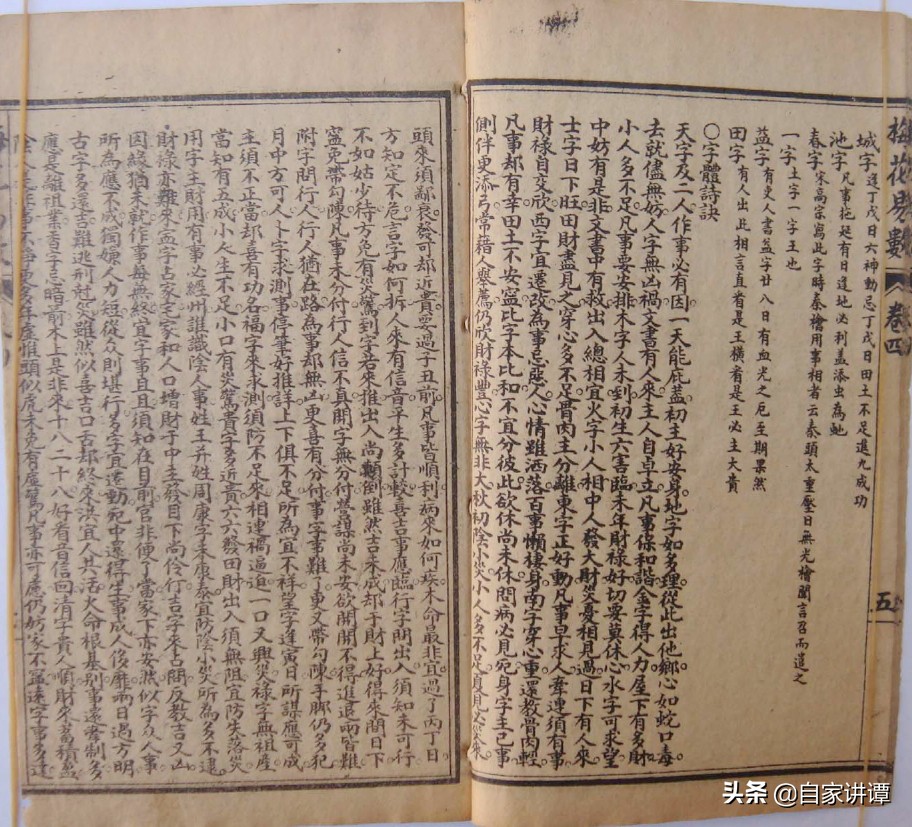 梅花易數 卷四 五
城字 逢丁戊日六神動忌丁戊日田土不足進九成功
池字 凡事拖起有日還地必利蓋添虫為虵
春字 宋高宗寫此字時秦檜用事相者云秦頭太重壓日無光檜聞言召而遣之
一字 土字一字王也
益字 有吏人書益字廿八日有血光之厄至期果然
田字 有人出此相言直看是王橫看是王必主大貴
〇字體詩訣
天字及二人作事必有因一天能庇蓋初主好安身地字如多理從此出他鄉心如蛇口毒
去就儘無妨人字無凶禍文書有人來主人自卓立凡事保和諧金字得人力屋下有多財
小人多不足凡事要安排木字人未到初生六害臨未年財祿好切要莫休心水字可求望
中妨有是非文書中有救出入總相宜火字小人相中人發大財災憂相見過日下有人來
土字日下旺田財盡見之穿心多不足骨肉主分離東字正好動凡事早求人牽連須有事
財祿自交欣西字宜遷改為事忌惡人心情雖洒落百事懶棲身南字穿心重還教骨肉輕
凡事都有幸田土不安寧北字本比和不宜分彼此欲休尚未休問病必見死身字主己事
側伴更添弓常藉人舉薦仍欣財祿豐心字無非大秋初陰小災小人多不足夏見必
頭來須鄙衰發可却近貴要過子丑前凡事皆順利病來如何疾木命最非宜過了丙丁日
方知定不危言字如何拆人來有信音平生多計較喜吉事應臨行字問出入須知未可行
不如姑少待方免有災驚到字若來推出入尚顛倒雖然吉未成却于財上好得來問日下
寧免帶勾陳凡事未分付行人信不真開字無分付營謀尚未安欲開開不得進退兩皆難
附字問行人行人猶在路為事却無凶更喜有分付事字事難了更又帶勾陳手脚仍多犯
月中方可人卜字求測事停筆好推詳上下俱不足所為宜不祥望字逢寅日所謀應可成
主須不正當却喜有功名福字來求測須防不足來相連禍逼迫一口又興災祿字無祖產
當知有五成小人生不足小口有災驚貴字多近貴六六發田財出入須無阻宜防失落災
用字主財用有事必經州誰識陰人事姓王并姓周康字未康泰宜防陰小災所為多不逮
財祿亦難來孟字占家宅家和人口增財于中主發目下尚伶仃吉字來占問反教吉又凶
因緣猶未就作事每無終宜字事且且須知在目前官非便了當家下亦安然似字众人事
所為應不成獨嫌人力短從众則堪行多字宜遷動死中還得生事成人後靡兩日過方明
古字多還吉雖逃刑尅災雖然似喜吉口舌却終來洪宜人共活火命根基別事遂要制多
應是離祖業香字忌暗前木上是非來十八二十八好看音信回清字貴人順財來蓄積
頭似虎未免有虛驚凡事亦可慮仍妨家不寧遠字事多
头条 @自家讲谭